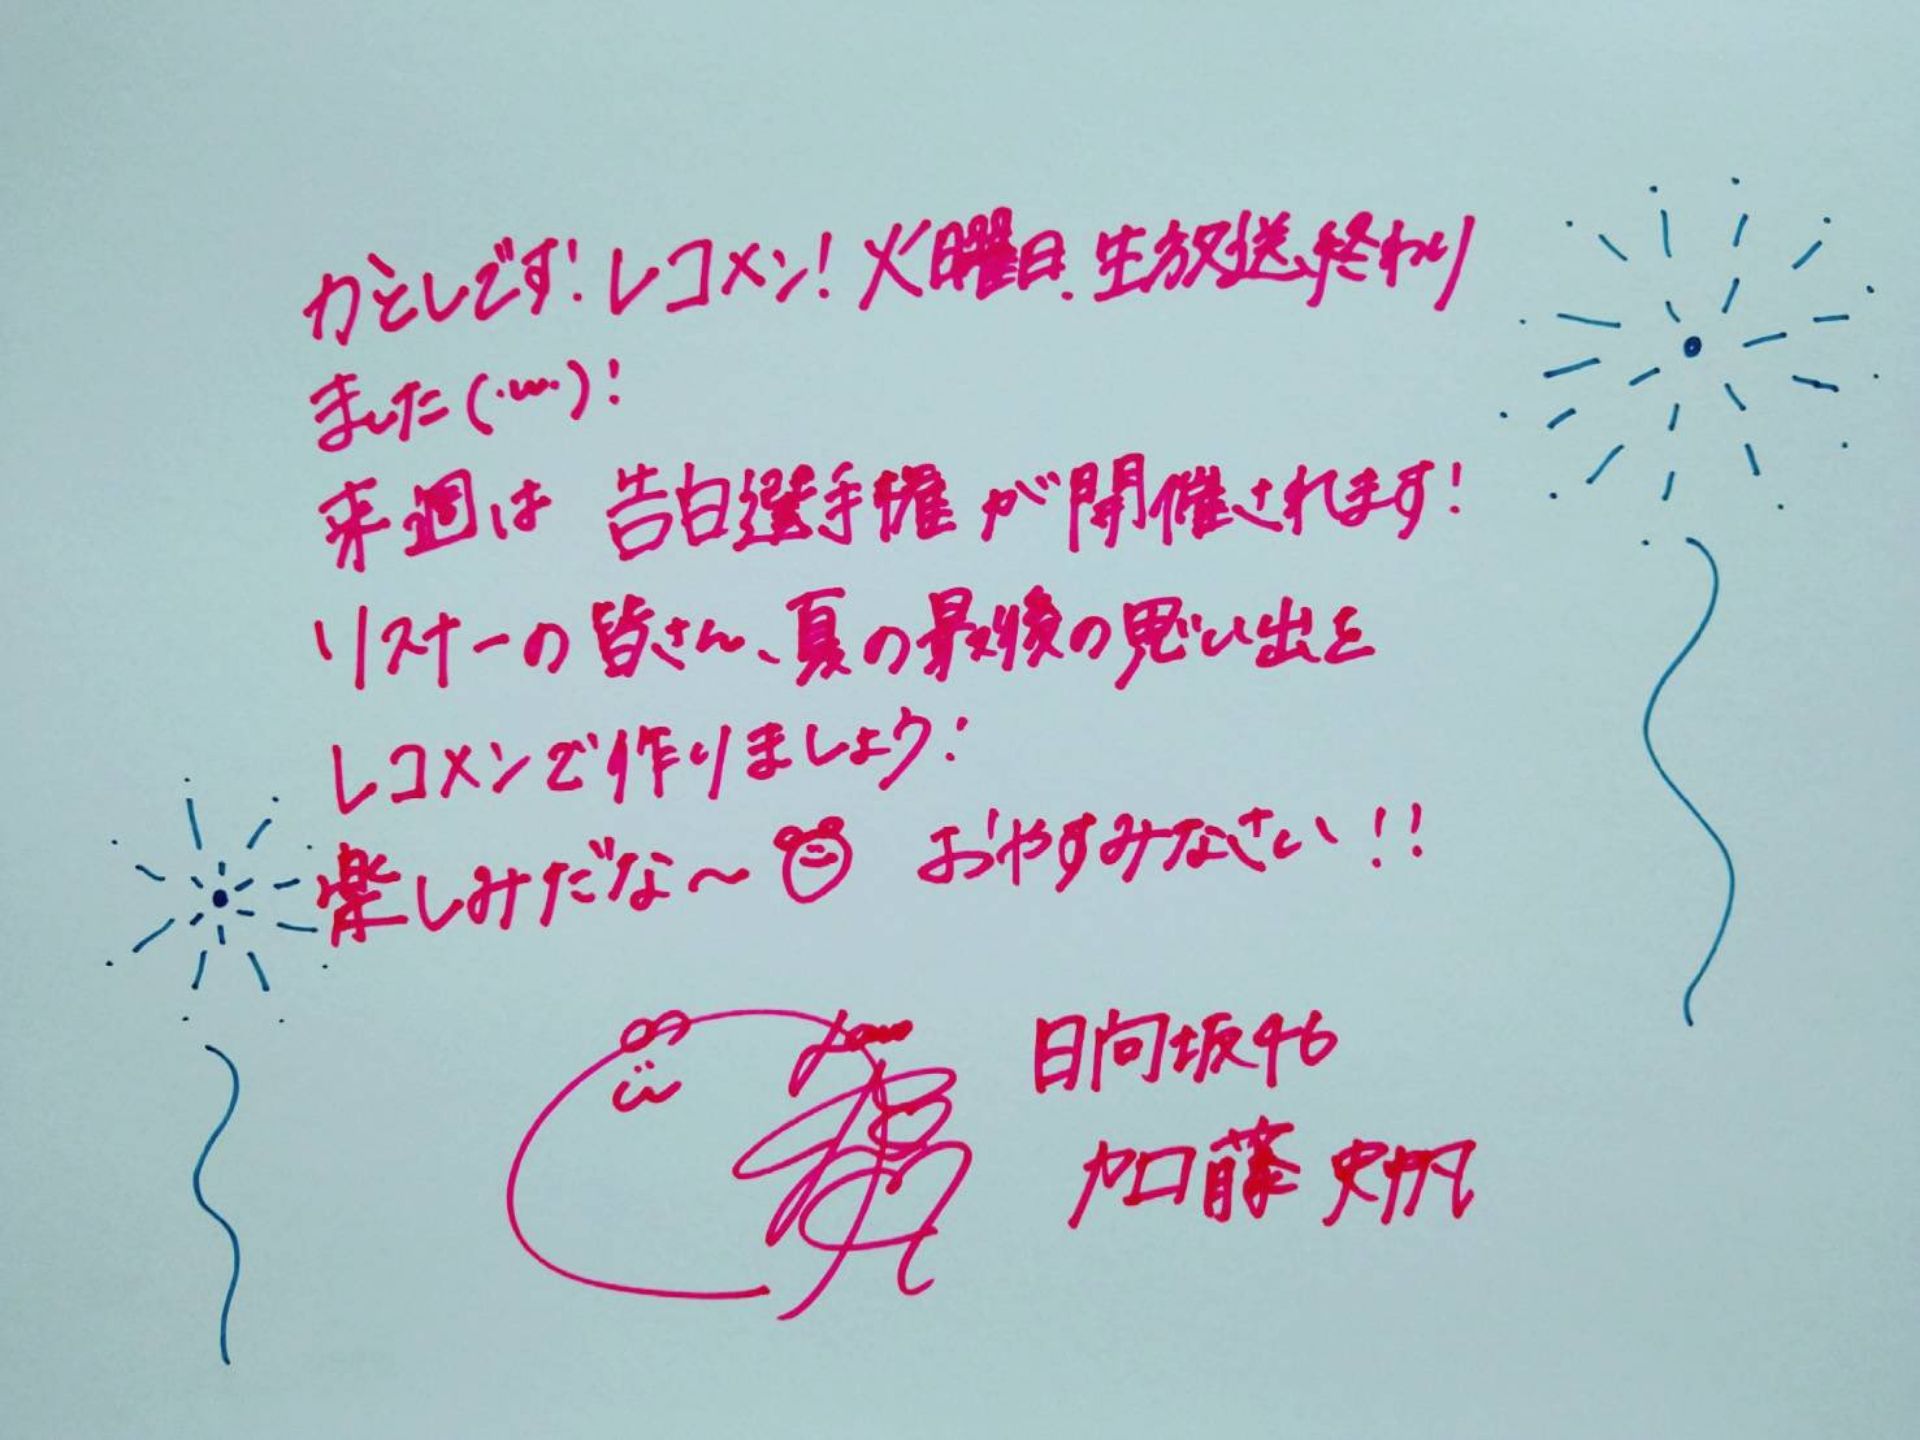 かとしです!レコメン!火曜日.生放送終わり
ました(・ω・)!
来週は 告白選手権が開催されます!
リスナーの皆さん、夏の最後の思い出を
レコメンで作りましょう!
楽しみだな〜 おやすみなさい!!
日向坂46
加藤史帆